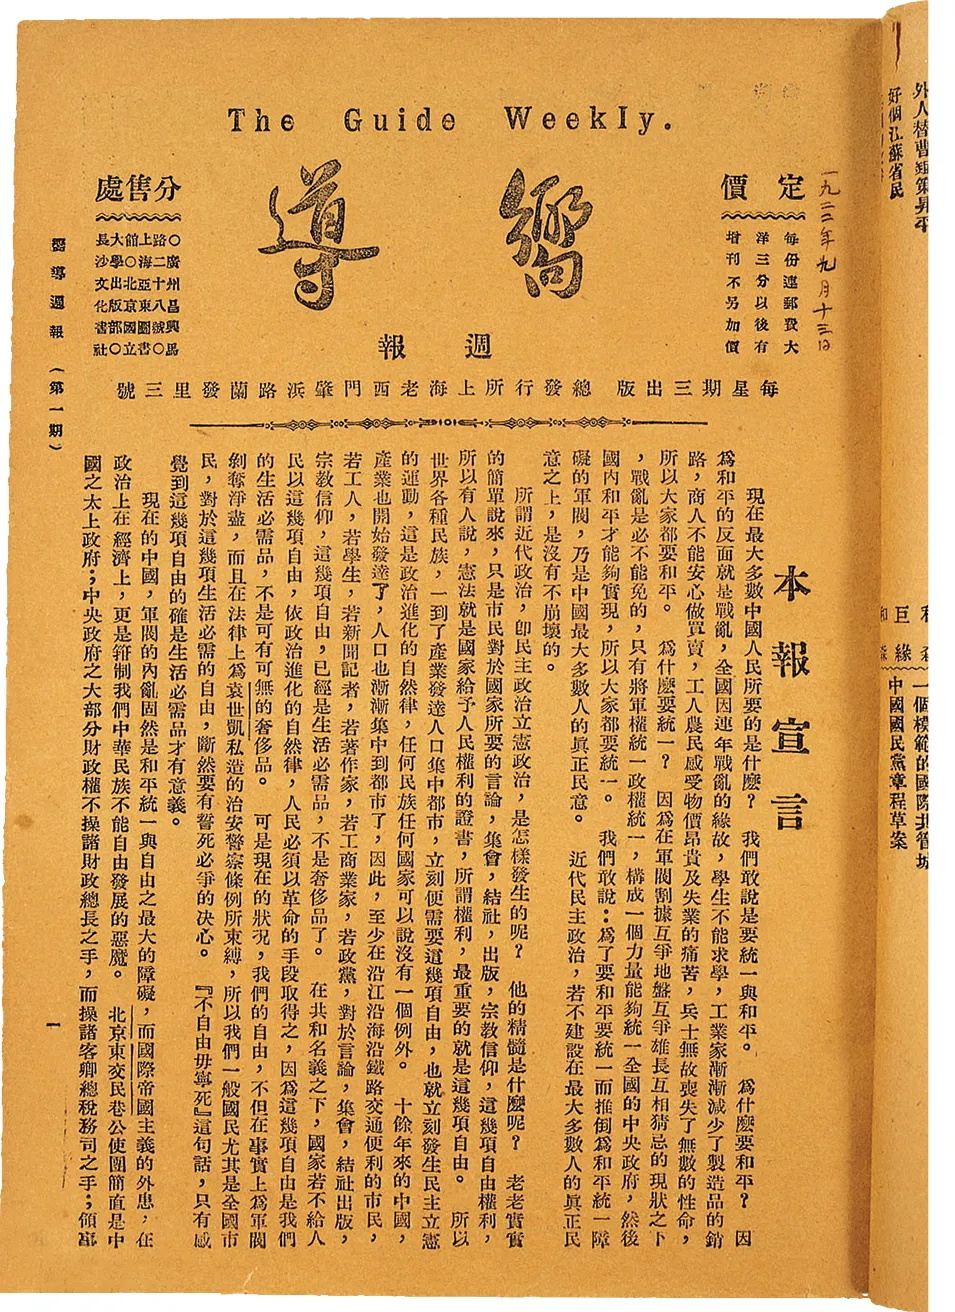 The Guide Weekly.
嚮導
週報
定價
每份連郵費大
洋三分以後有
增刊不另加價
一九二二年九月十三日
分售處
〇廣州昌興馬
路二十八號〇
上海亞東圖書
館〇北京國立
大學出版部〇
長沙文化書社
每星期三出版 總發行所上海老西門肇浜路蘭發里三號
本報宣言
現在最大多數中國人民所要的是什麽? 我們敢說是要統一與和平。 爲什麽要和平? 因
爲和平的反面就是戰亂,全國因連年戰亂的緣故,學生不能求學,工業家漸漸減少了製造品的銷
路,商人不能安心做買賣,工人農民感受物價昂貴及失業的痛苦,兵士無故喪失了無數的性命,
所以大家都要和平。 爲什麽要統一? 因爲在軍閥割據互爭地盤互爭雄長互相猜忌的現狀之下
,戰亂是必不能免的,只有將軍權統一政權統一,構成一個力量能夠統一全國的中央政府,然後
國內和平才能夠實現,所以大家都要統一。 我們敢說:爲了要和平要統一而推倒爲和平統一障
礙的軍閥,乃是中國最大多數人的眞正民意。 近代民主政治,若不建設在最大多數人的眞正民
意之上,是沒有不崩壞的。
所謂近代政治,卽民主政治立憲政治,是怎樣發生的呢? 他的精髓是什麽呢? 老老實實
的簡單說來,只是市民對於國家所要的言論,集會,結社,出版,宗教信仰,這幾項自由權利,
所以有人說,憲法就是國家給予人民權利的證書,所謂權利,最重要的就是這幾項自由。 所以
世界各種民族,一到了產業發達人口集中都市,立刻便需要這幾項自由,也就立刻發生民主立憲
的運動,這是政治進化的自然律,任何民族任何國家可以說沒有一個例外。 十餘年來的中國,
產業也開始發達了,人口也漸漸集中到都市了,因此,至少在沿江沿海沿鐵路交通便利的市民,
若工人,若學生,若新聞記者,若著作家,若工商業家,若政黨,對於言論,集會,結社出版,
宗教信仰,這幾項自由,已經是生活必需品,不是奢侈品了。 在共和名義之下,國家若不給人
民以這幾項自由,依政治進化的自然律,人民必須以革命的手段取得之,因爲這幾項自由是我們
的生活必需品,不是可有可無的奢侈品。 可是現在的狀况,我們的自由,不但在事實上爲軍閥
剝奪淨盡,而且在法律上爲袁世凱私造的治安警察條例所束縛,所以我們一般國民尤其是全國市
民,對於這幾項生活必需的自由,斷然要有誓死必爭的決心。 『不自由毋寧死』這句話,只有感
覺到這幾項自由的確是生活必需品才有意義。
現在的中國,軍閥的內亂固然是和平統一與自由之最大的障礙,而國際帝國主義的外患,在
政治上在經濟上,更是箝制我們中華民族不能自由發展的惡魔。 北京東交民巷公使團簡直是中
國之太上政府;中央政府之大部分財政權不操諸財政總長之手,而操諸客卿總稅務司之手;領事
嚮導週報 (第一期)
一
好個江蘇省民
中國國民黨章程草案